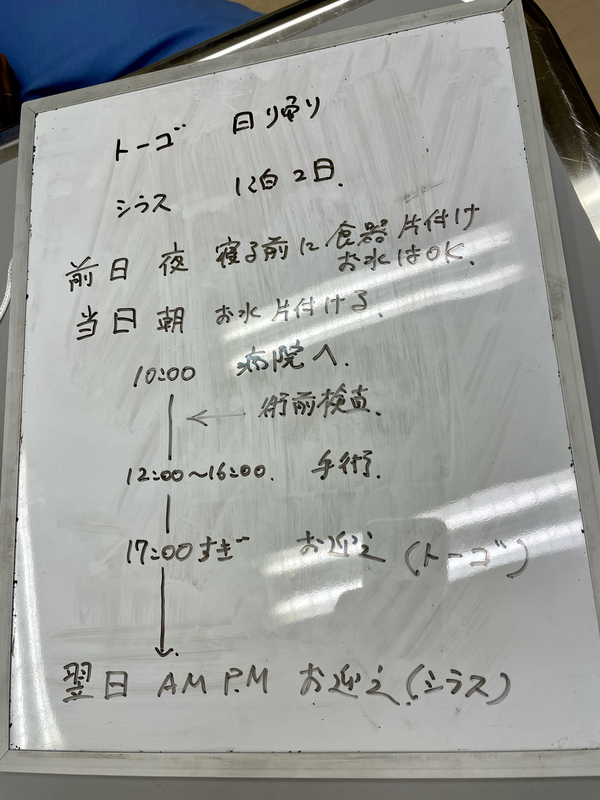 トーゴ 日り帰り
シラス 1泊2日.
前日 夜 寝る前に食器片付け
お水はOK.
当日 朝 お水片付ける.
10:00 病院へ.
← 術前検査.
12:00~16:00. 手術.
17:00すぎ お迎え(トーゴ)
翌日 AM P.M お迎え(シラス)